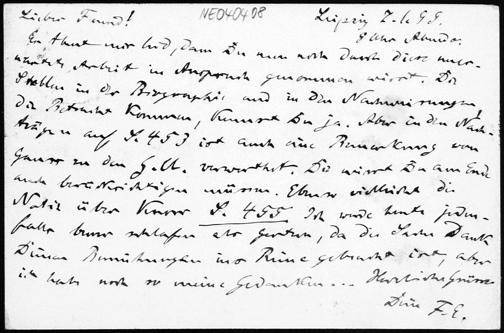 Lieber Freund!
NE040408
Leipzig 7.1.98.
8 Uhr Abends.
Es thut mir leid, dass Du nun noch durch diese uner-
Arbeit in Anspruch genommen wirst. Die
Stellen in der Biographie und in den Nachweisungen,
die Betracht kommen, kennst Du ja. Aber in den Nach-
trägen auf S. 453 ist auch eine Bemerkung von
Gauss zu den verwerthet. Die wirst Du am Ende
auch berücksichtigen müssen. Ebenso vielleicht die
Notiz über S. 455 Ich werde heute jeden-
falls besser schlafen als gestern, da die Sache Dank
Deinen Bemühungen ins Reine gebracht ist, aber
ich habe noch so meine Gedanken... Herzliche Grüsse
Dein F. E.